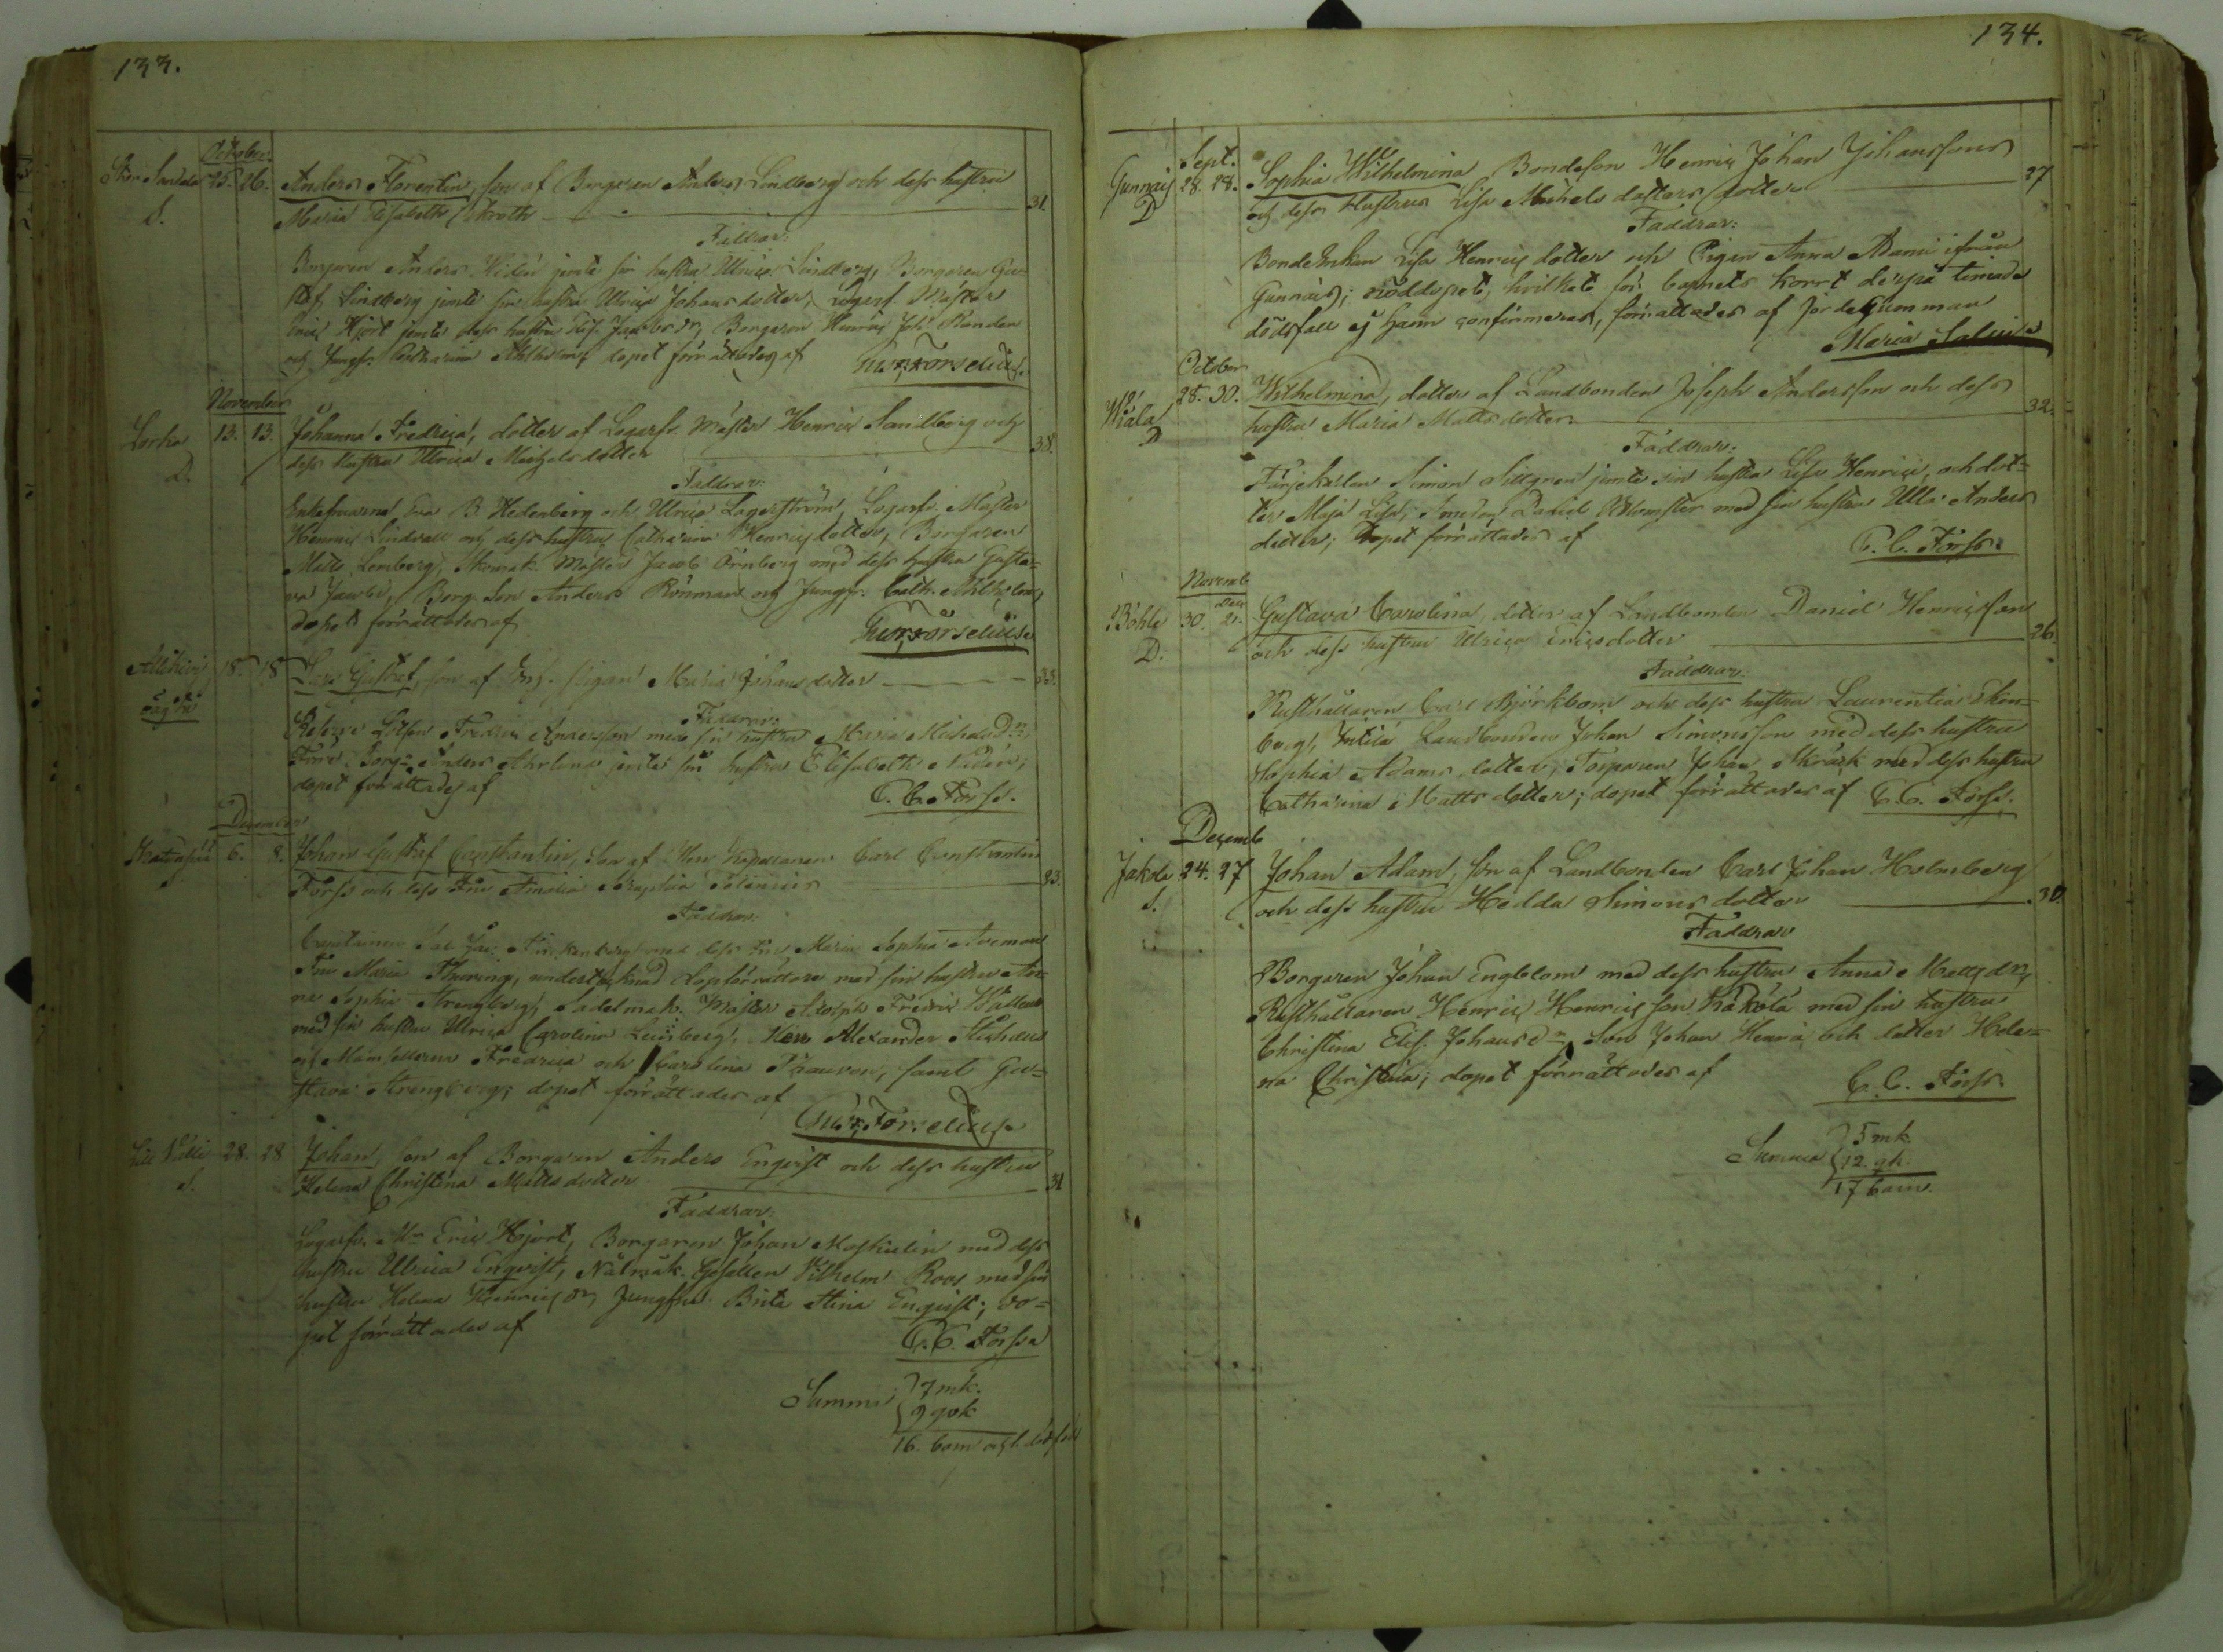 133.
October
25. 26. Anders Florentin, son af Borgaren Anders Lindberg och dess hustru
S. Maria Elisabeth 31.
Faddrar:
Borgaren Anders Widén jemte sin hustru Ulrica Lindberg, Borgaren Gu-
staf Lindberg jemte sin hustru Ulrica Johansdotter, Logarf. Mäster
Eric Hjort jemte dess hustru Borgaren Henric Joh.
och Jungfr. Catharina dopet förrättades af
November
13. 13. Johanna Fredrica, dotter af Logarfv. Mäster Henric Sandberg och
D. dess Hustru Ulrica Michelsdotter 38.
Faddrar:
Enkefruarna Eva B. Hedenberg och Ulrica Lagerström, Logarfv. Mäster
Henric Lindvall och dess hustru Catharina Henricsdotter, Borgaren
Matts Lemberg, Mäster Jacob Örnberg med dess hustru Gusta-
va Borg. Son Anders Rönman och Jungfr. Cath.
Dopet förrättades af
18. 18 Lars Gustaf, son af Pigan Maria Johansdotter
oägta
Faddrar:
Lotsen Fredric Andersson med sin hustru Maria Michelsdr,
Borg:n Anders Ahrlund jemte sin hustru Elisabeth Widén;
dopet förrättades af C. C. Forss.
December
6. 8. Johan Gustaf Constantin, Son af Herr Kapellanen Carl Constantin
S. Forss och dess Fru Amalia Polénius 23.
Faddrar:
med dess Fru Maria Sophia
Fru Maria Thuring, undertecknad dopförrättare med sin hustru An-
na Sophia Strengberg, Sadelmak. Mäster Adolph Fredric
med sin hustru Ulrica Carolina Herr Alexander
och Mamsellerna Fredrica och Carolina samt Gu-
stava Strengberg; dopet förrättades af
28. 28 Johan, son af Borgaren Anders Enqvist och dess hustru
S. Helena Christina Mattsdotter 31
Faddrar:
Logarfv. Mr Eric Hjort, Borgaren Johan med dess
hustru Ulrica Enqvist, Gesällen Vilhelm Roos med sin
hustru Helena Jungfru Brita Stina Enqvist; do-
pet förrättades af C. C. Forss
Summa 7 mk.
9 qvk
16. barn
134.
Sept.
28. 28. Sophia Wilhelmina Bondeson Henric Johan Johanssons
Gunnäs D och dess Hustrus Lisa Michelsdotters dotter 27
Faddrar:
Bondeenkan Lisa Henricsdotter och Pigan Anna Adami ifrån
Gunnäs; nöddopet, hvilket för barnets kort derpå timade
dödsfall ej hann confirmeras, förrättades af Jordegumman
Maria Salenia
October
28. 30. Wilhelmina, dotter af Landbonden Joseph Andersson och dess
Wiala D hustru Maria Mattsdotter 32.
Faddrar:
Färjekarlen Simon Sillgren jemte sin hustru Lisa Henrici, och dot-
ter Maja Lisa; Smeden Daniel Blomster med sin hustru Ulla Anders
dotter; Dopet förrättades af C. C. Forss.
Novemb. Dec.
30. 2. Gustava Carolina, dotter af Landbonden Daniel Henricsson
Böhle D. och dess hustru Ulrica Ericsdotter 26.
Faddrar:
Rusthållaren Carl Björkbom och dess hustru Laurentia Eken-
berg, Landbonden Johan Simonsson med dess hustru
Sophia Adamsdotter, Torparen Johan Skräck med dess hustru
Catharina Mattsdotter; dopet förrättades af C. C. Forss.
Decemb
24. 27 Johan Adam, son af Landbonden Carl Johan Holmberg
Jakola S. och dess hustru Hedda Simonsdotter 30.
Faddrar
Borgaren Johan Engblom med dess hustru Anna Mattsdr,
Rusthållaren Henric Henricsson Kåkola med sin hustru
Christina Elis. Johansdr, Son Johan Henric och dotter Hele-
na Christina; dopet förrättades af C. C. Forss.
Summa 5 mk
12. qk.
17 barn.